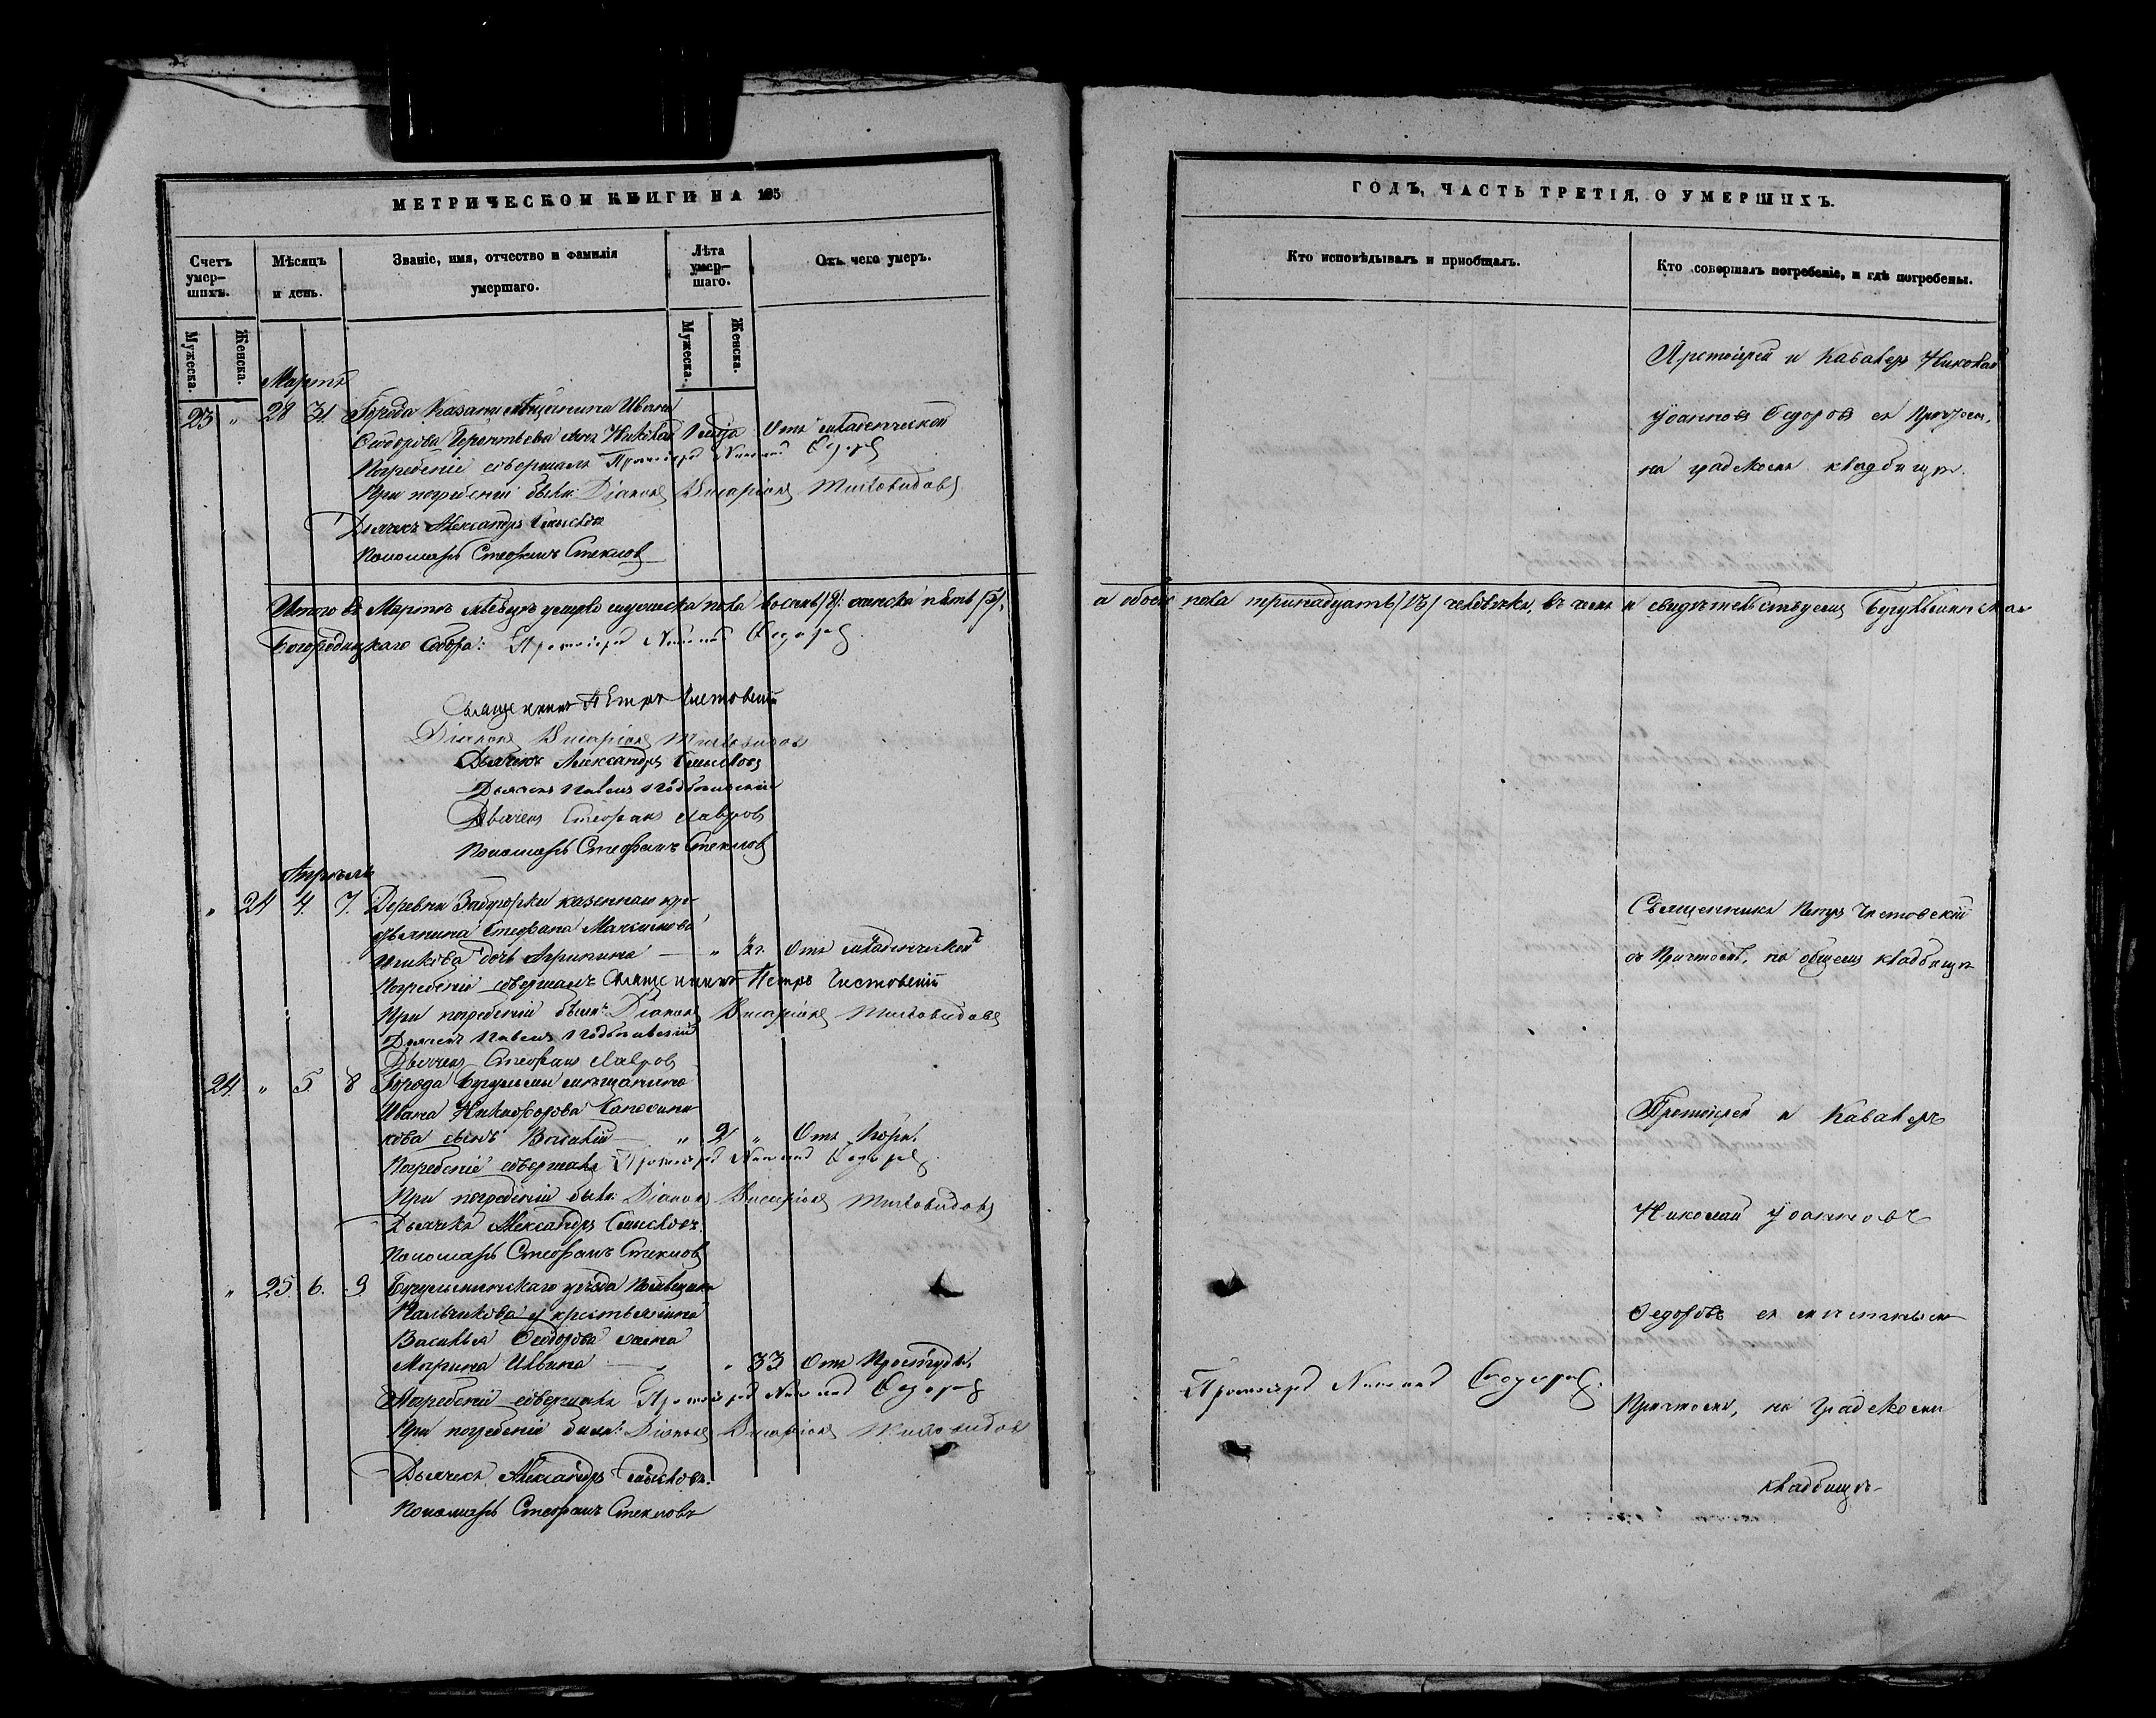 МЕТРИЧЕСКОЙ КНИГИ НА 185
Счетъ умер-шихъ.
Мѣсяцъ и день.
Званіе, имя, отчество и фамилія умершаго.
Лѣта умер-шаго.
Отъ чего умеръ.
Мужеска.
Женска.
Мужеска.
Женска.
Мартъ
23 " 28 31. Города Казани мѣщанина Ивана
Ѳеодорова Терентьева сынъ Николай 1 года Отъ младенческой
Погребеніе совершалъ Протоіерей Николай Ѳедоровъ
При погребеніи были: Діаконъ Виссаріонъ Миловидовъ
Дьячекъ Александръ Смысловъ
Пономарь Стефанъ Стекловъ
Итого въ Мартѣ мѣсяцѣ умерло мужеска пола восемь /8/: женска пять /5/,
Богородицкаго Собора: Протоіерей Николай Ѳедоровъ.
Священникъ Петръ Чистовскій
Діаконъ Виссаріонъ Миловидовъ
Дьячекъ Александръ Смысловъ
Дьячекъ Павелъ
Дьячекъ Стефанъ Лавровъ
Пономарь Стефанъ Стекловъ
Апрѣль
" 24 4. 7. Деревни казеннаго кре-
стьянина Стефана Максимова
дочь Агрипина — " Отъ младенческой
Погребеніе совершалъ Священникъ Петръ Чистовскій
При погребеніи были: Діаконъ Виссаріонъ Миловидовъ
Дьячекъ Павелъ
Дьячекъ Стефанъ Лавровъ
24. " 5. 8 Города Бугульмы мѣщанина
Ивана Никифорова
кова сынъ Василій — " 2 " Отъ Кори.
Погребеніе совершалъ Протоіерей Николай Ѳедоровъ
При погребеніи были: Діаконъ Виссаріонъ Миловидовъ
Дьячекъ Александръ Смысловъ.
Пономарь Стефанъ Стекловъ
" 25. 6. 9. Бугульминскаго уѣзда помѣщика
Пальчикова крестьянина
Василья Ѳеодорова жена
Марина — " 33 Отъ Простуды.
Погребеніе совершалъ Протоіерей Николай Ѳедоровъ
При погребеніи были: Діаконъ Виссаріонъ Миловидовъ
Дьячекъ Александръ Смысловъ.
Пономарь Стефанъ Стекловъ
ГОДЪ, ЧАСТЬ ТРЕТІЯ, О УМЕРШИХЪ.
Кто исповѣдывалъ и пріобщалъ.
Кто совершалъ погребеніе, и гдѣ погребены.
Протоіерей и Кавалеръ Николай
Іоанновъ Ѳедоровъ съ Причтом,
на градскомъ кладбищѣ.
а обоего пола тринадцать /13/ человѣкъ, въ чемъ и свидѣтельствуемъ Бугульминскаго
Священникъ Петръ Чистовскій
съ Причтомъ, на общемъ кладбищѣ
Протоіерей и Кавалеръ
Николай Іоанновъ
Ѳедоровъ съ
Протоіерей Николай Ѳедоровъ.
Причтомъ, на Градскомъ
кладбищѣ